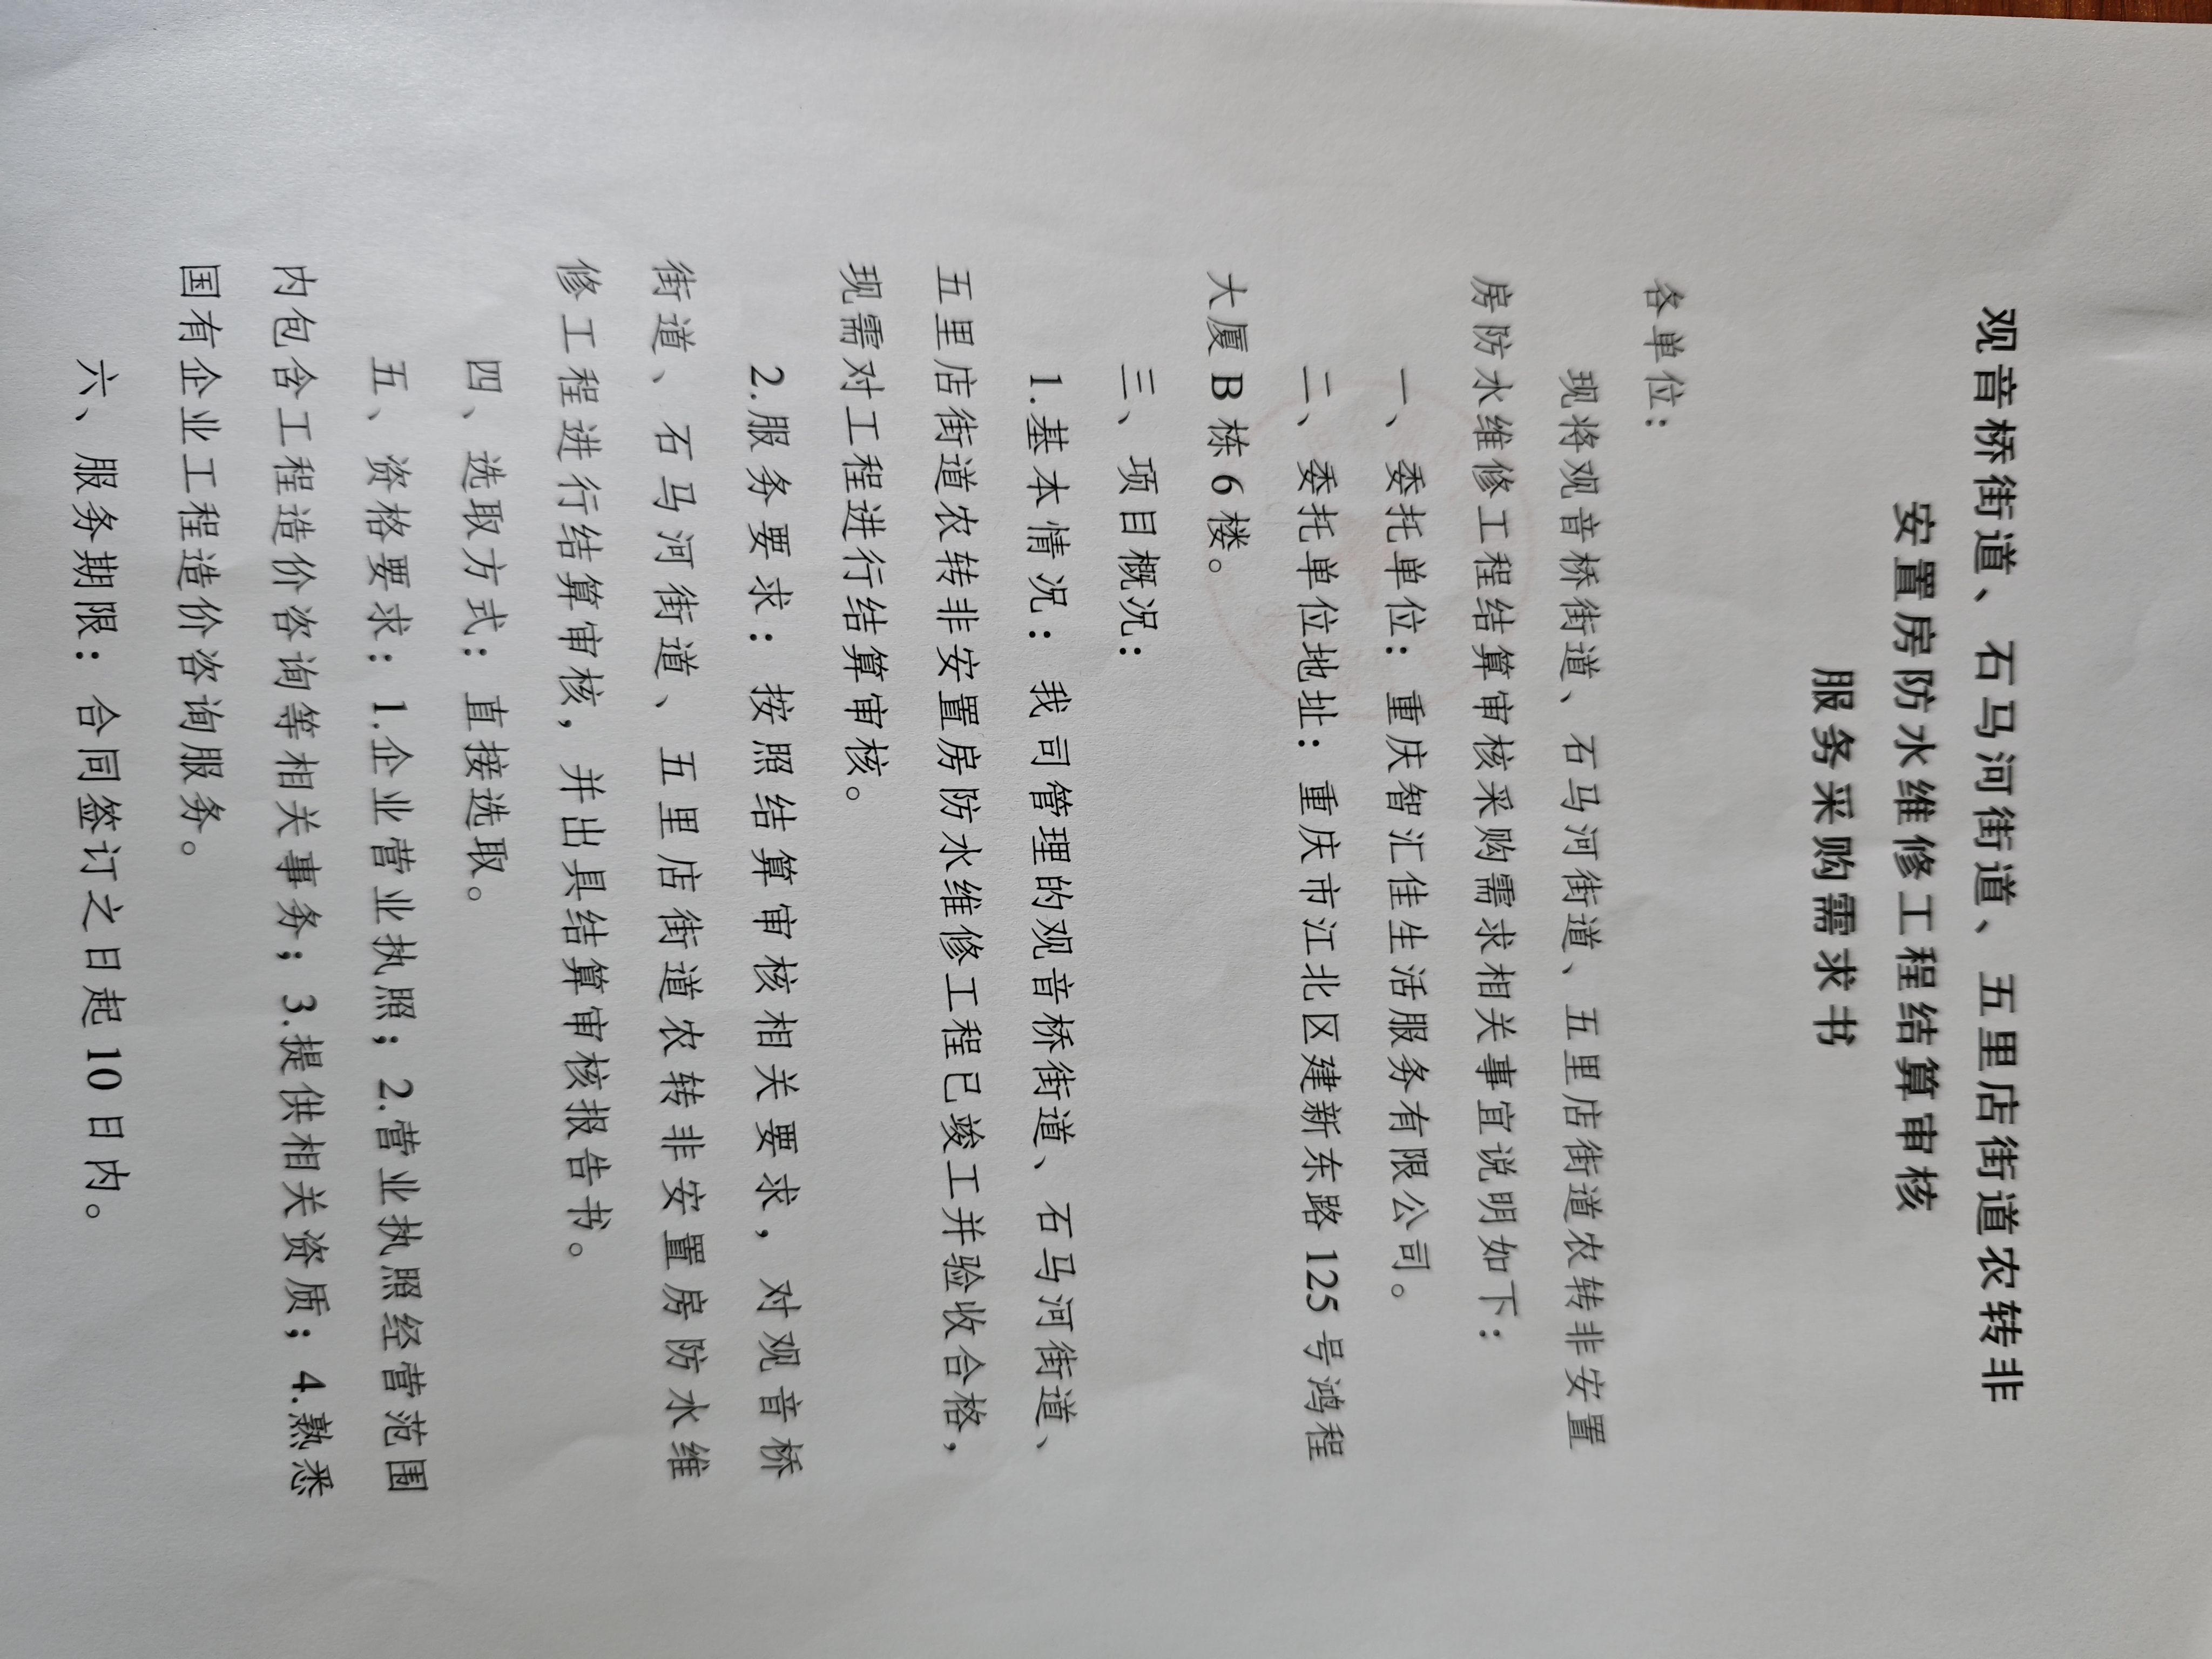 观音桥街道、石马河街道、五里店街道农转非
安置房防水维修工程结算审核
服务采购需求书
各单位：
现将观音桥街道、石马河街道、五里店街道农转非安置
房防水维修工程结算审核采购需求相关事宜说明如下：
一、委托单位：重庆智汇佳生活服务有限公司。
二、委托单位地址：重庆市江北区建新东路 125 号鸿程
大厦 B 栋 6 楼。
三、项目概况：
1.基本情况：我司管理的观音桥街道、石马河街道、
五里店街道农转非安置房防水维修工程已竣工并验收合格，
现需对工程进行结算审核。
2.服务要求：按照结算审核相关要求，对观音桥
街道、石马河街道、五里店街道农转非安置房防水维
修工程进行结算审核，并出具结算审核报告书。
四、选取方式：直接选取。
五、资格要求：1.企业营业执照；2.营业执照经营范围
内包含工程造价咨询等相关事务；3.提供相关资质；4.熟悉
国有企业工程造价咨询服务。
六、服务期限：合同签订之日起 10 日内。